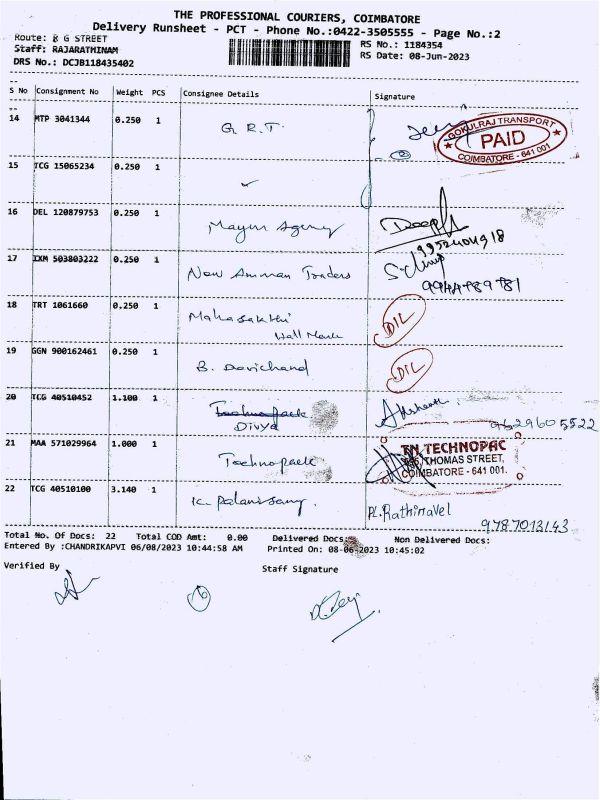 THE PROFESSIONAL COURIERS, COIMBATORE
Delivery Runsheet - PCT - Phone No.:0422-3505555 - Page No.:2
Route: B G STREET
RS No.: 1184354
Staff: RAJARATHINAM
RS Date: 08-Jun-2023
DRS No.: DCJB118435402
S No Consignment No Weight PCS Consignee Details Signature
14 MTP 3041344 0.250 1 G. R. T.
GOKULRAJ TRANSPORT
PAID
COIMBATORE - 641 001
15 TCG 15065234 0.250 1
16 DEL 120879753 0.250 1 Mayur Agency Deepk
9952404918
17 IXM 503803222 0.250 1 New Amman Traders
9944789781
18 TRT 1061660 0.250 1 Mahasakthi
Wall Mark
DIL
19 GGN 900162461 0.250 1 B. Davichand DIL
20 TCG 40510452 1.100 1 Technopack
Divya
9629605522
21 MAA 571029964 1.000 1 Technopack
TN TECHNOPAC
THOMAS STREET,
COIMBATORE - 641 001.
22 TCG 40510100 3.140 1 K. Palanisamy. PL. Rathinavel
9787013143
Total No. Of Docs: 22 Total COD Amt: 0.00 Delivered Docs: Non Delivered Docs:
Entered By :CHANDRIKAPVI 06/08/2023 10:44:58 AM Printed On: 08-06-2023 10:45:02
Verified By Staff Signature